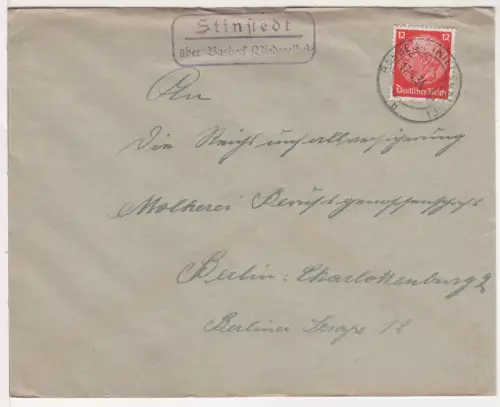 Stinstedt
über Basbeck (Niederelbe)
12 12
Deutsches Reich
An
Die Reichsunfallversicherung
Molkerei Berufsgenossenschaft
Berlin-Charlottenburg 2
Berliner Strasse 12